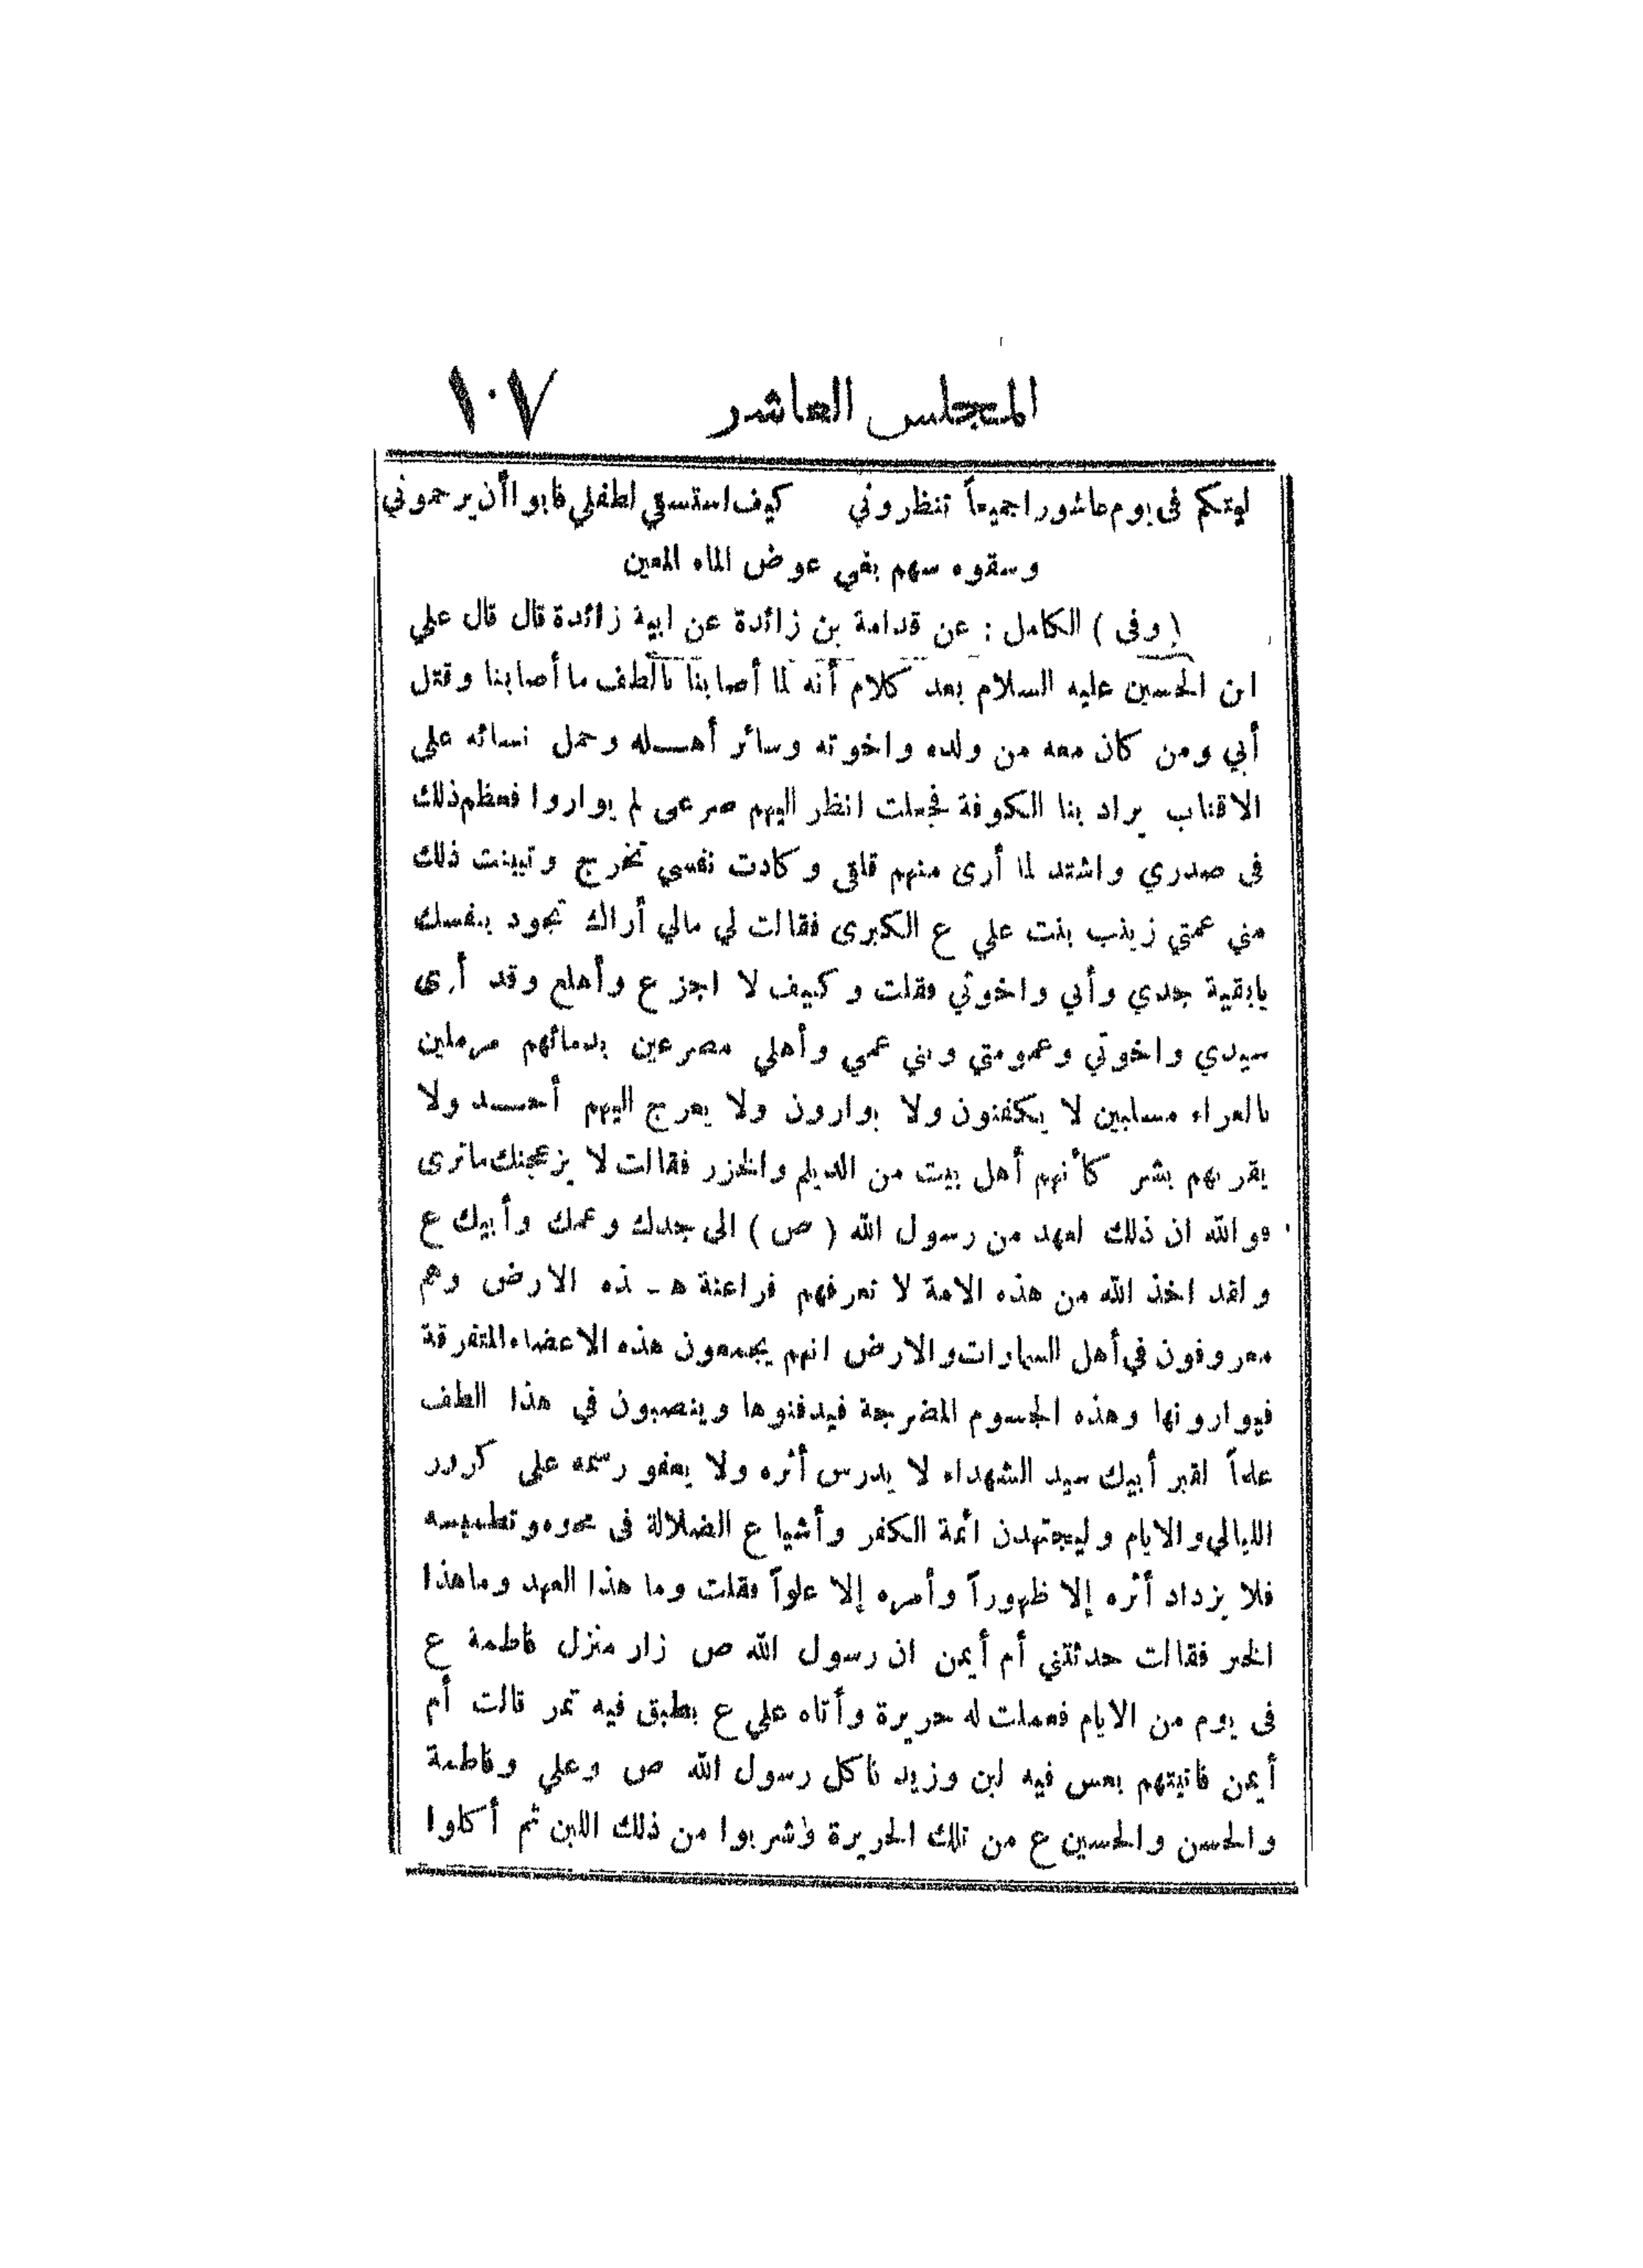 المجلس العاشر ١٠٧
ليتكم فى يوم عاشورا جميعاً تنظروني كيف استسقي لطفلي فابوا أن يرحموني
وسقوه سهم بغي عوض الماء المعين
( وفى ) الكامل : عن قدامة بن زائدة عن ابية زائدة قال قال علي
ابن الحسين عليه السلام بعد كلام أنه لما أصابنا بالطف ما أصابنا وقتل
أبي ومن كان معه من ولده واخوته وسائر أهـله وحمل نسائه على
الاقتاب يراد بنا الكوفة فجعلت انظر اليهم صرعى لم يواروا فعظم ذلك
فى صدري واشتد لما أرى منهم قلقى وكادت نفسي تخرج وتبينت ذلك
مني عمتي زينب بنت علي ع الكبرى فقالت لي مالي أراك تجود بنفسك
يابقية جدي وأبي واخوتي فقلت وكيف لا اجزع وأهلع وقد أرى
سيدي واخوتي وعمومتي وبني عمي وأهلي مصرعين بدمائهم مرملين
بالعراء مسلبين لا يكفنون ولا يوارون ولا يعرج اليهم أحـد ولا
يقربهم بشر كأنهم أهل بيت من الديلم والخزر فقالت لا يزعجنك ماترى
فو الله ان ذلك لعهد من رسول الله ( ص ) الى جدك وعمك وأبيك ع
ولقد اخذ الله من هذه الامة لا تعرفهم فراعنة هـذه الارض وهم
معروفون في أهل السماوات والارض انهم يجمعون هذه الاعضاء المتفرقة
فيوارونها وهذه الجسوم المضرجة فيدفنوها وينصبون في هذا الطف
علماً لقبر أبيك سيد الشهداء لا يدرس أثره ولا يعفو رسمه على كرور
الليالي والايام وليجتهدن ائمة الكفر وأشياع الضلالة فى محوه وتطميسه
فلا يزداد أثره إلا ظهوراً وأمره إلا علواً فقلت وما هذا العهد وماهذا
الخبر فقالت حدثتني أم أيمن ان رسول الله ص زار منزل فاطمة ع
فى يوم من الايام فعملت له حريرة وأتاه علي ع بطبق فيه تمر قالت أم
أيمن فاتيتهم بعس فيه لبن وزبد فاكل رسول الله ص وعلي وفاطمة
والحسن والحسين ع من تلك الحريرة وشربوا من ذلك اللبن ثم أكلوا